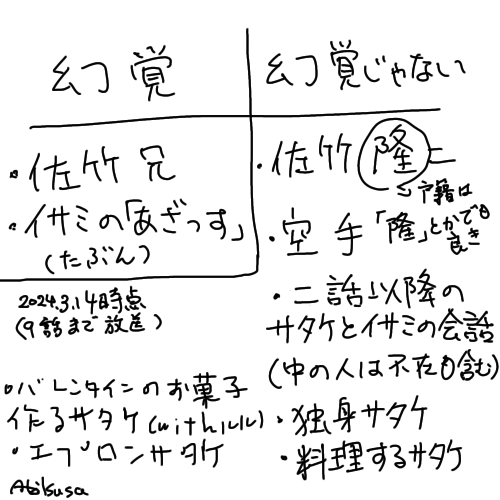 幻覚
幻覚じゃない
・佐竹兄
・イサミの「あざっす」
(たぶん)
2024.3.14時点
(9話まで放送)
・佐竹隆二
→戸籍は
「隆」とかでも
良き
・空手
・二話以降の
サタケとイサミの会話
(中の人は不在も含む)
・独身サタケ
・料理するサタケ
・バレンタインのお菓子
作るサタケ(withルル)
・エプロンサタケ
Abikusa